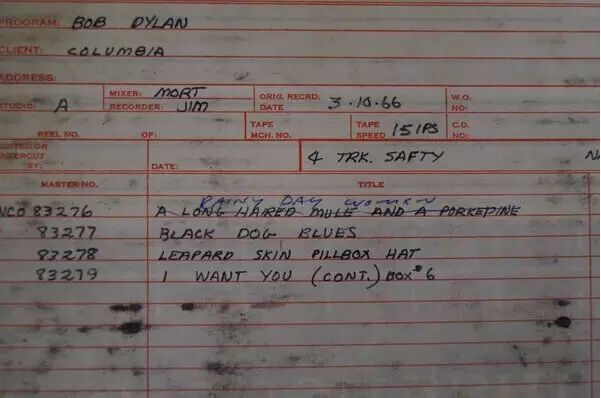 PROGRAM: BOB DYLAN
CLIENT: COLUMBIA
ADDRESS:
STUDIO: A MIXER: MORT RECORDER: JIM ORIG. RECRD. DATE 3-10-66 W.O. NO:
REEL NO. OF: TAPE MCH. NO. TAPE SPEED 15 IPS C.O. NO:
EDITED OR INTERCUT BY: DATE: 4 TRK. SAFTY
MASTER NO. TITLE
RAINY DAY WOMEN
NCO 83276 A LONG HAIRED MULE AND A PORKEPINE
83277 BLACK DOG BLUES
83278 LEAPARD SKIN PILLBOX HAT
83279 I WANT YOU (CONT.) BOX #6